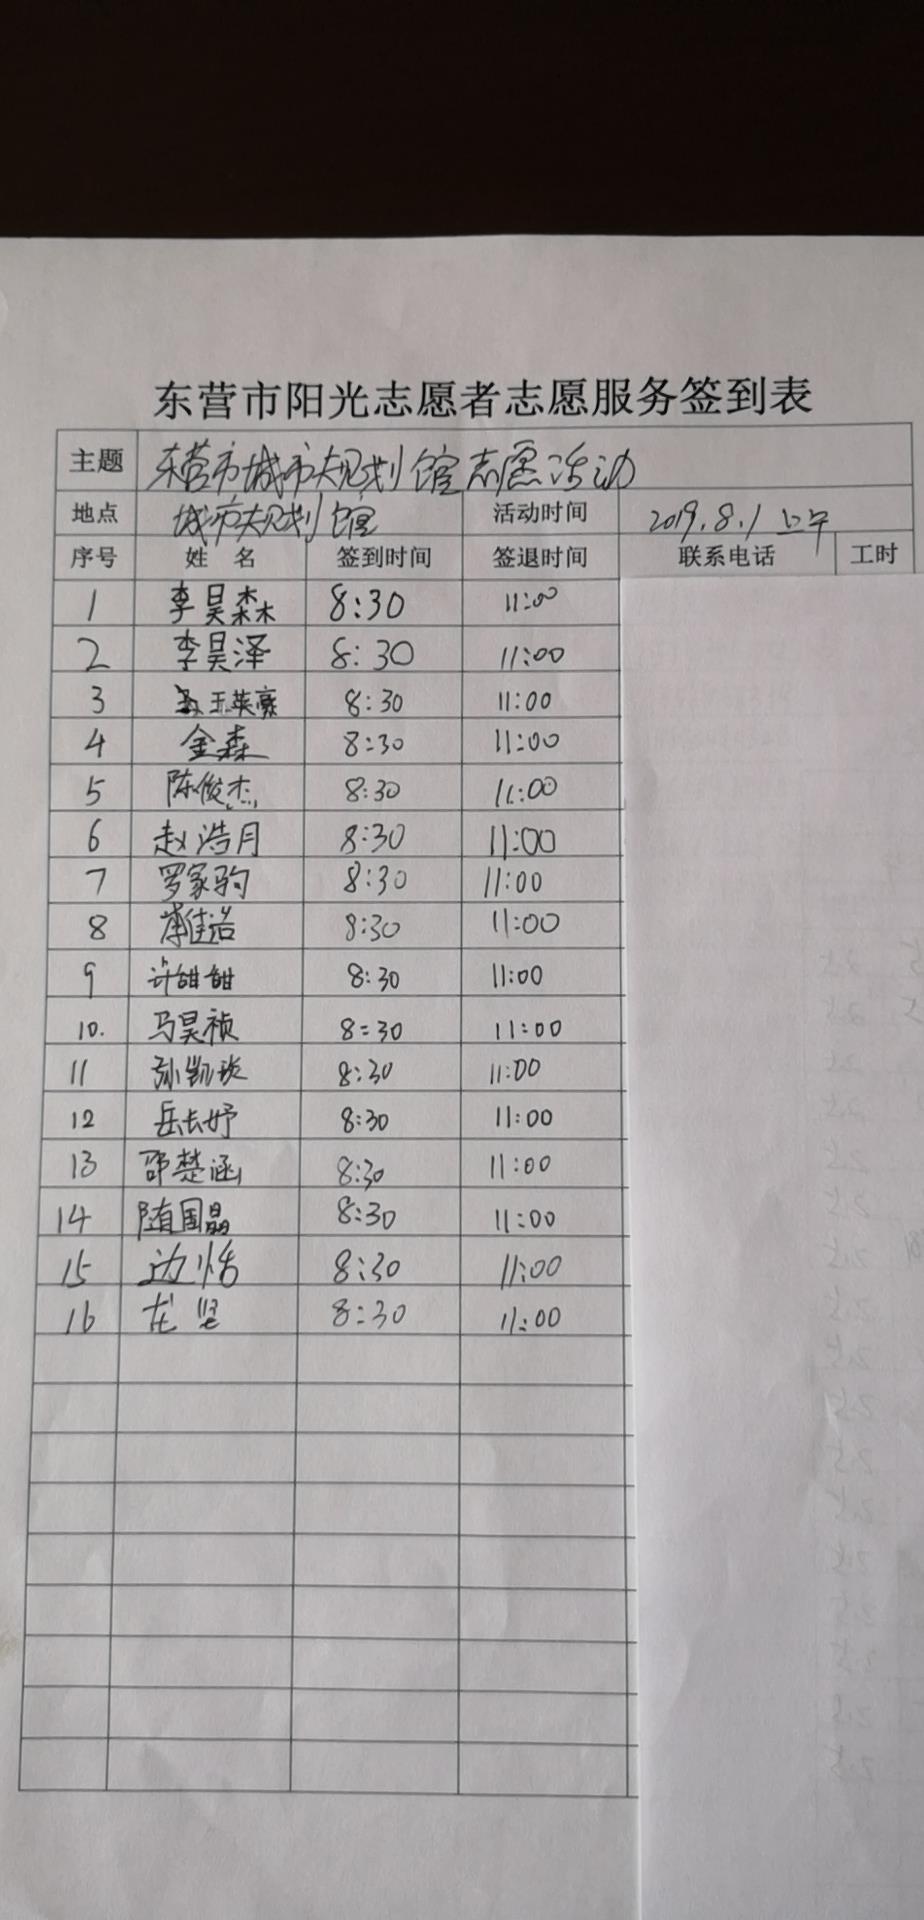 东营市阳光志愿者志愿服务签到表
主题 东营市城市规划馆志愿活动
地点 城市规划馆 活动时间 2019.8.1 上午
序号 姓 名 签到时间 签退时间 联系电话 工时
1 李昊森 8:30 11:00
2 李昊泽 8:30 11:00
3 王英豪 8:30 11:00
4 金森 8:30 11:00
5 陈俊杰 8:30 11:00
6 赵浩月 8:30 11:00
7 罗家驹 8:30 11:00
8 8:30 11:00
9 许甜甜 8:30 11:00
10. 马昊祯 8:30 11:00
11 孙凯琰 8:30 11:00
12 岳长妤 8:30 11:00
13 邵楚涵 8:30 11:00
14 隋国晶 8:30 11:00
15 边恬 8:30 11:00
16 龙坚 8:30 11:00